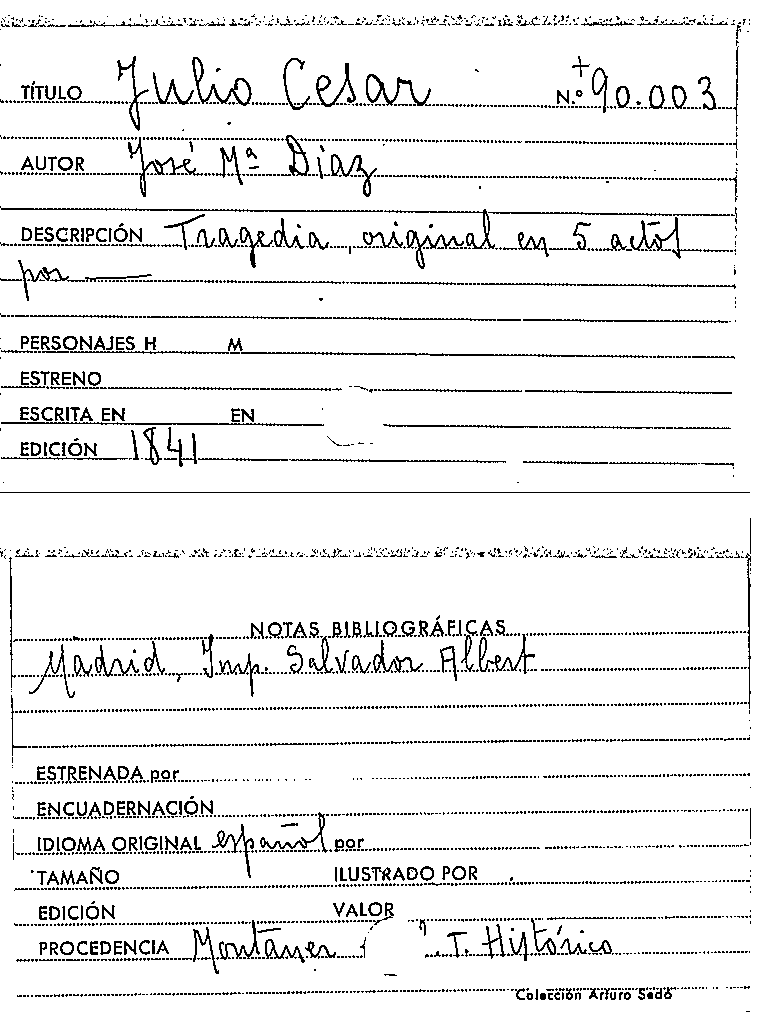 TÍTULO Julio Cesar N.º +90.003
AUTOR José Mª Diaz
DESCRIPCIÓN Tragedia, original en 5 actos
por —
PERSONAJES H M
ESTRENO
ESCRITA EN EN
EDICIÓN 1841
NOTAS BIBLIOGRÁFICAS
Madrid, Imp. Salvador Albert
ESTRENADA por
ENCUADERNACIÓN
IDIOMA ORIGINAL español por
TAMAÑO ILUSTRADO POR
EDICIÓN VALOR
PROCEDENCIA Montaner " T. Histórico
Colección Arturo Sedó